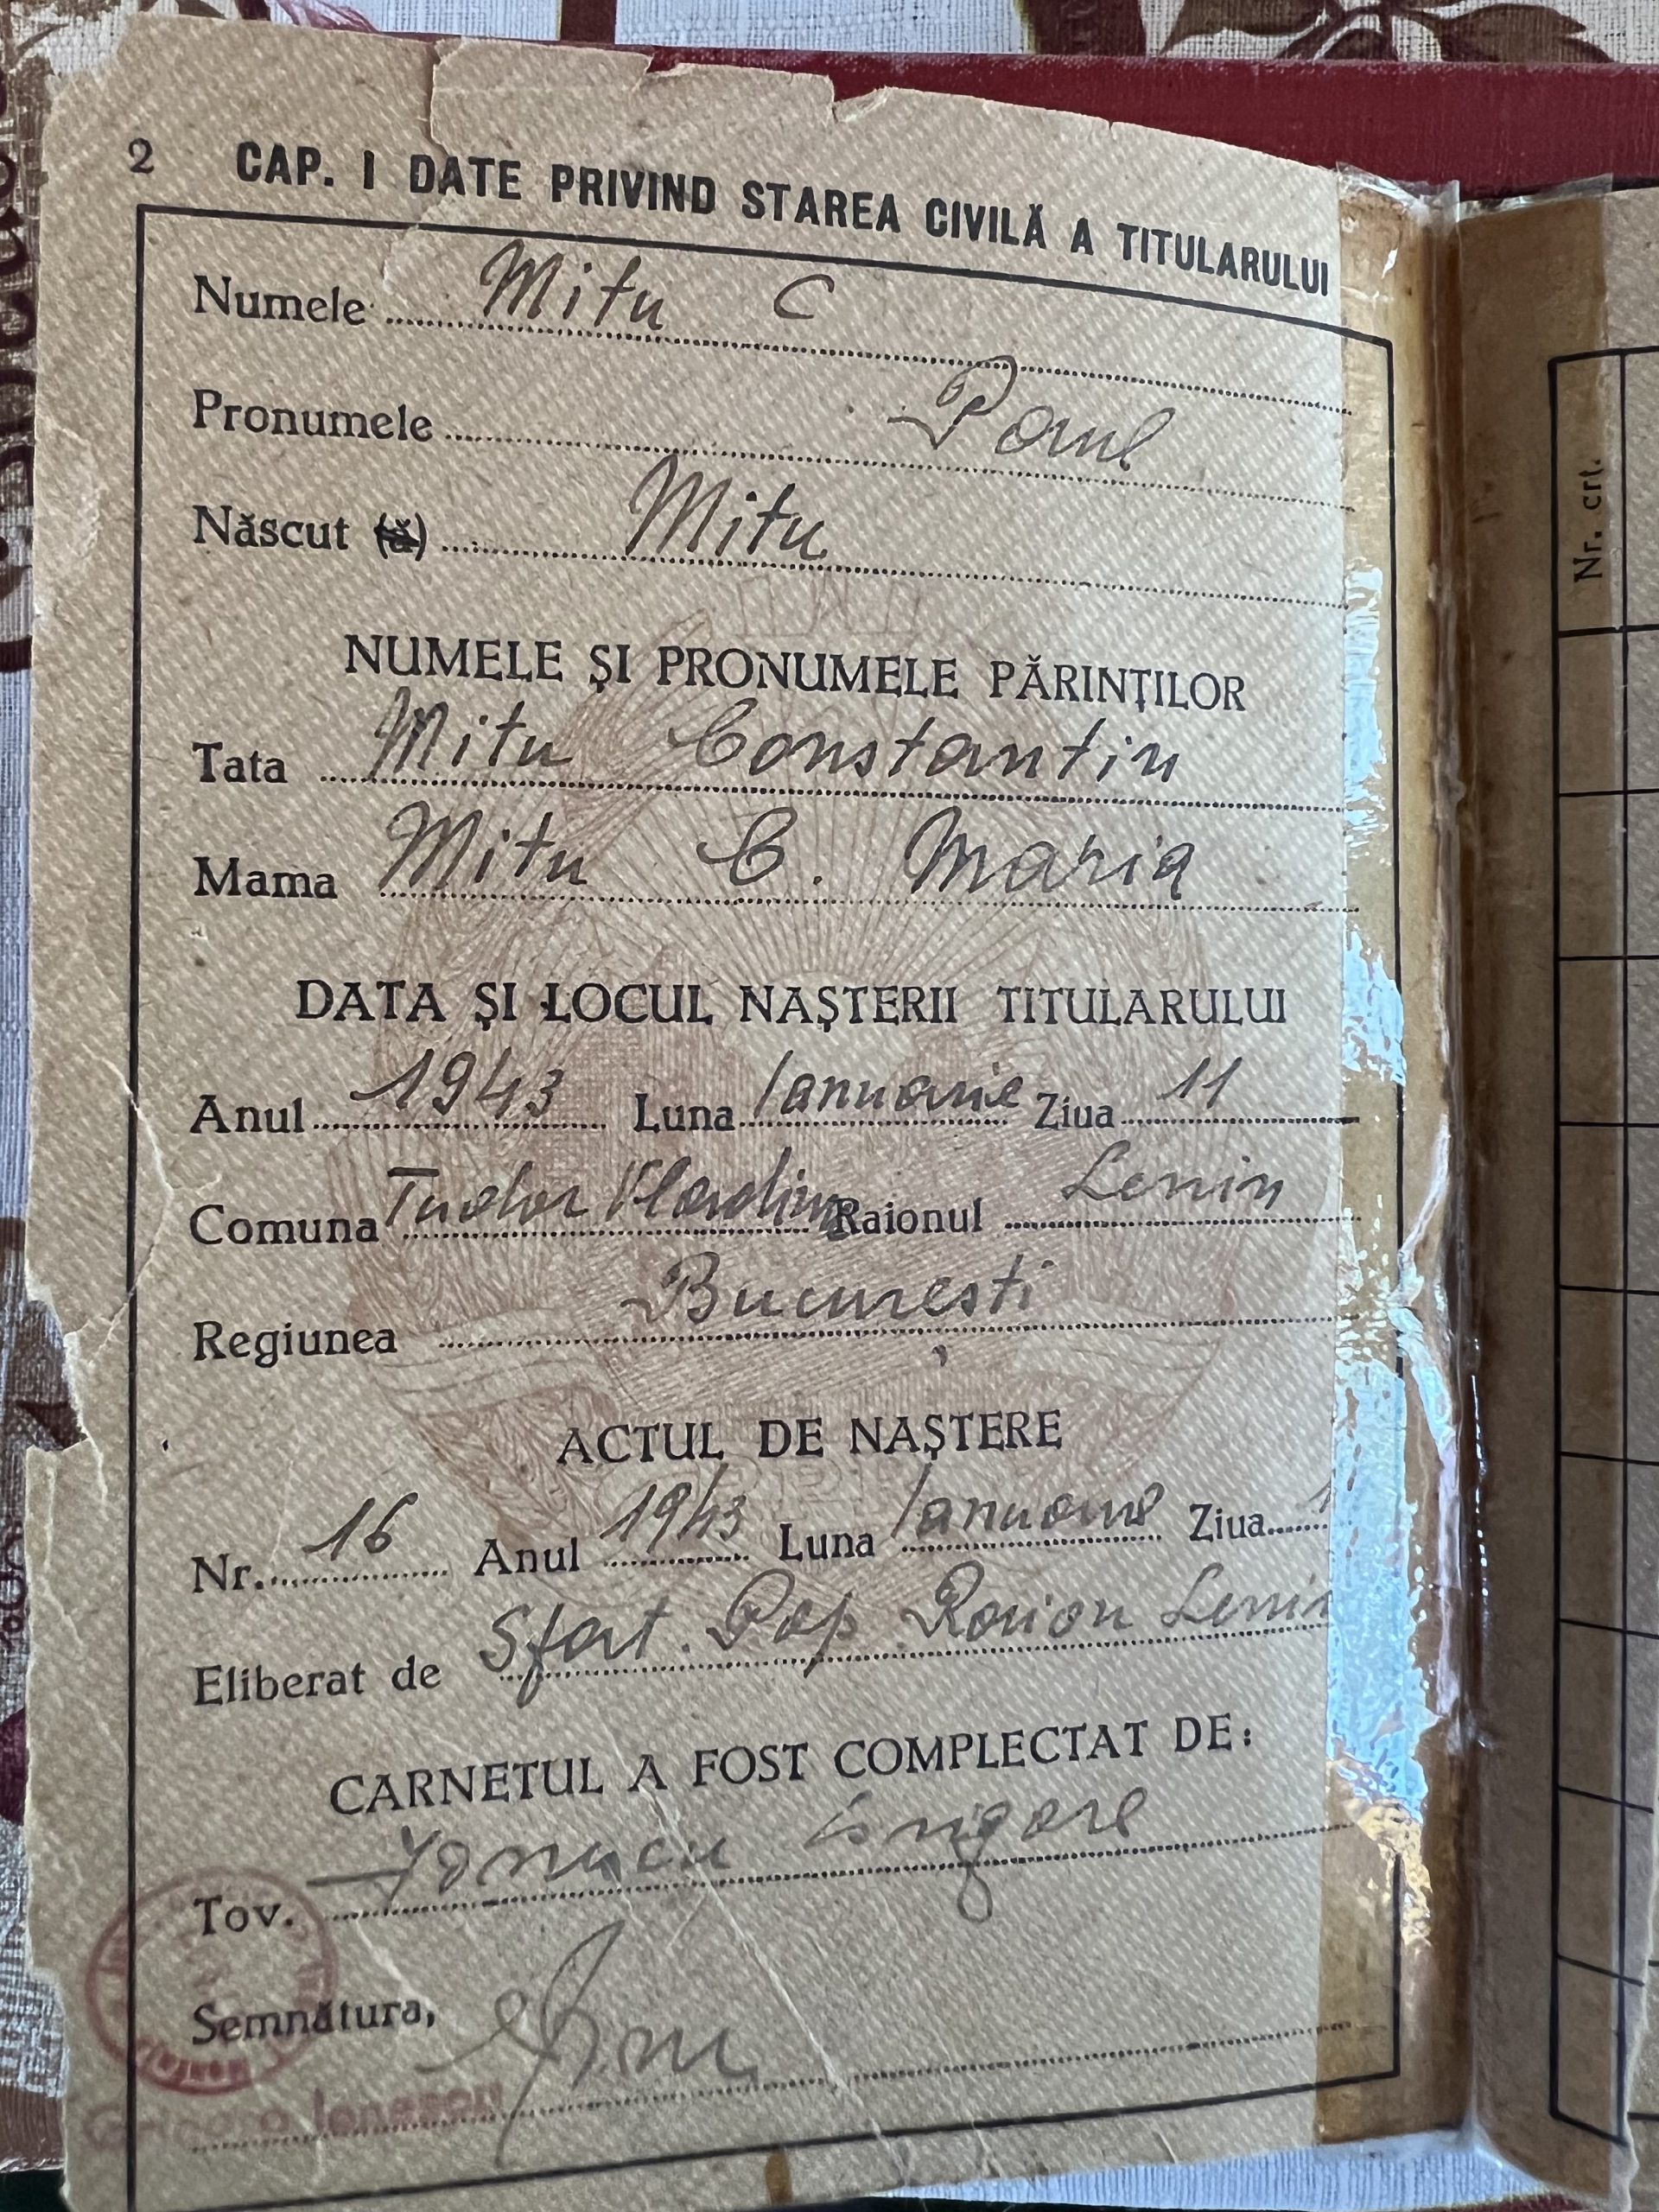 2 CAP. I DATE PRIVIND STAREA CIVILĂ A TITULARULUI
Numele Mitu C
Pronumele Paul
Născut (ă) Mitu
NUMELE ȘI PRONUMELE PĂRINȚILOR
Tata Mitu Constantin
Mama Mitu C. Maria
DATA ȘI LOCUL NAȘTERII TITULARULUI
Anul 1943 Luna Ianuarie Ziua 11
Comuna Tudor Vladim Raionul Lenin
Regiunea București
ACTUL DE NAȘTERE
Nr. 16 Anul 1943 Luna Ianuarie Ziua 1
Eliberat de Sfat. Pop. Raion Lenin
CARNETUL A FOST COMPLECTAT DE:
Tov. Grigore
Semnătura,
Nr. crt.